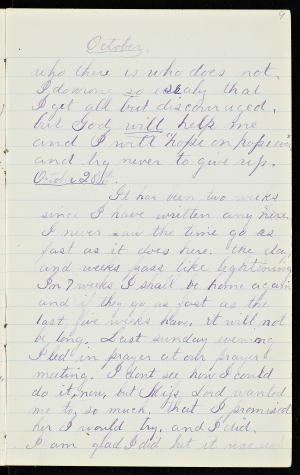 9
October.
who there is who does not.
I do wrong so easaly that
I get all but discouraged,
but God will help me
and I will "hope on hope ever"
and try never to give up.
October 28th.
It has been two weeks
since I have written any here.
I never saw the time go as
fast as it does here. The days
and weeks pass like lightening
In 7 weeks I shall be home again
and if they go as fast as the
last five weeks have, it will not
be long. Last sunday evening
I led in prayer at our prayer
meeting. I dont see how I could
do it, now, but Miss. Lord wanted
me to, so much, that I promised
her I would try, and I did.
I am glad I did but it